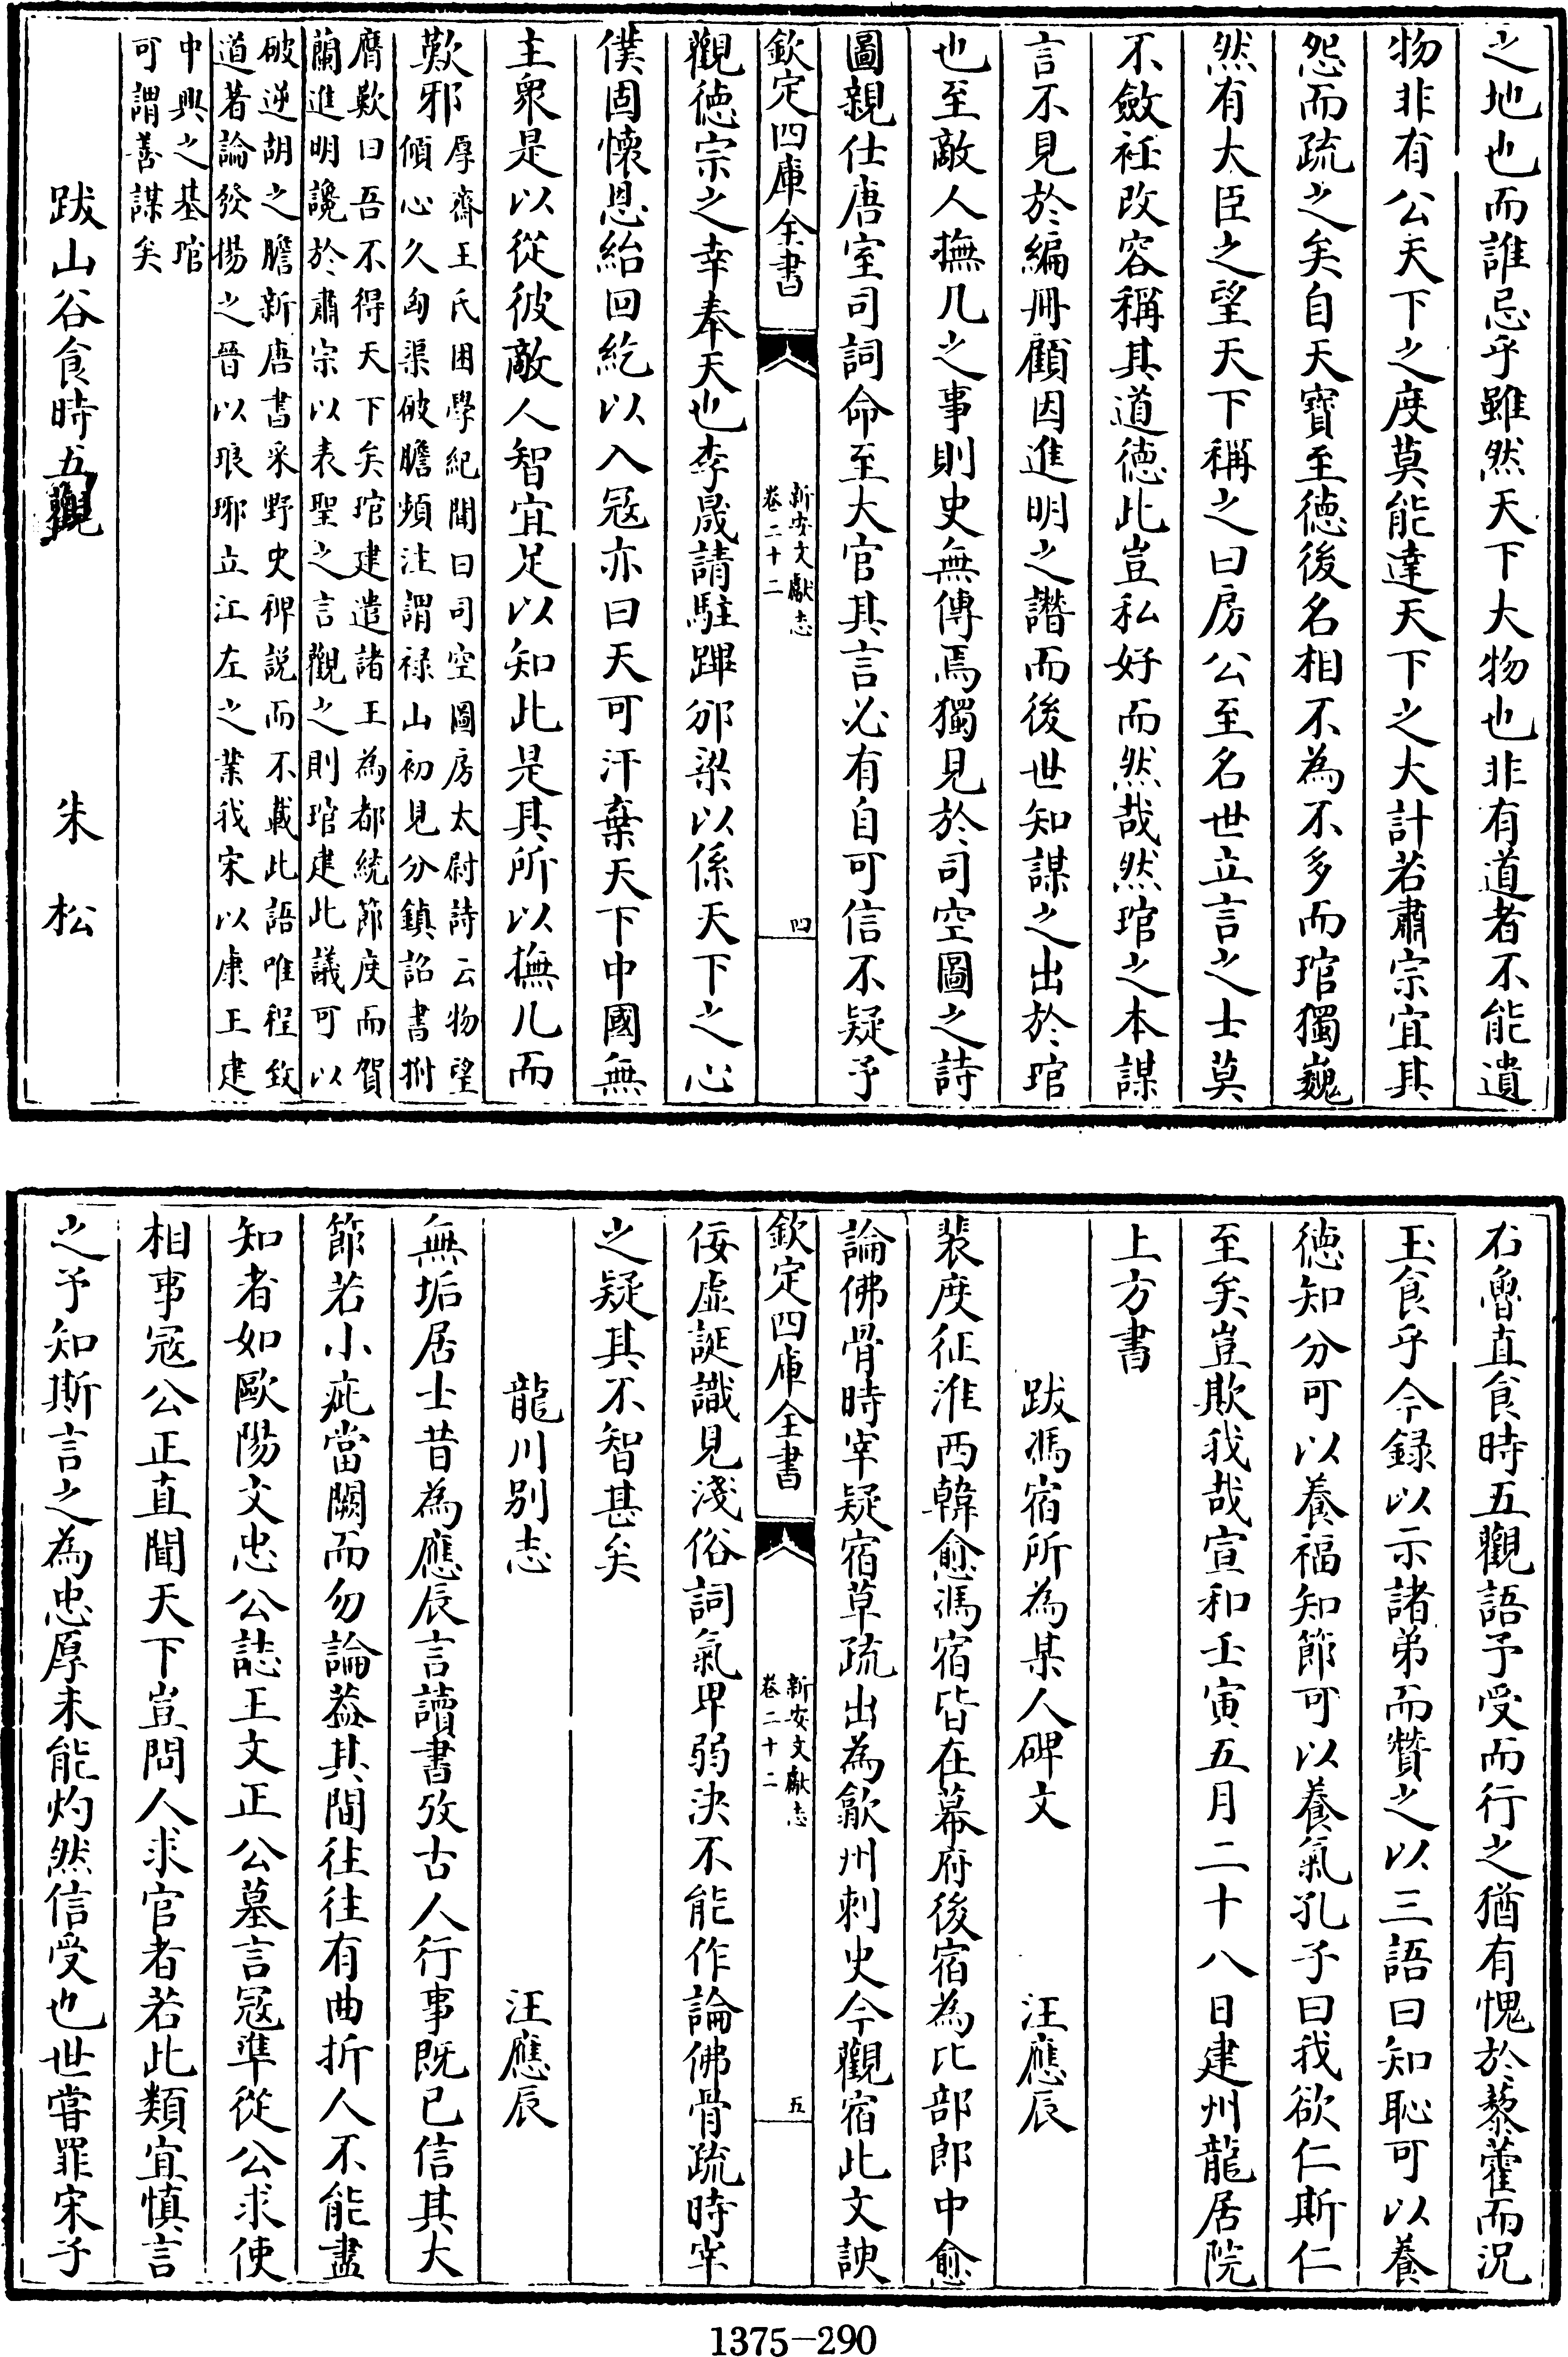 之地也而誰忌乎雖然天下大物也非有道者不能遺
物非有公天下之度莫能達天下之大計若肅宗宜其
怨而疏之矣自天寶至德後名相不為不多而琯獨巍
然有大臣之望天下稱之曰房公至名世立言之士莫
不斂衽改容稱其道德此豈私好而然哉然琯之本謀
言不見於編冊顧因進明之譖而後世知謀之出於琯
也至敵人撫几之事則史無傳焉獨見於司空圖之詩
圖親仕唐室司詞命至大官其言必有自可信不疑予
欽定四庫全書
新安文獻志
卷二十二
四
觀德宗之幸奉天也李晟請駐蹕邠梁以係天下之心
僕固懷恩紿回紇以入冦亦曰天可汗棄天下中國無
主衆是以從彼敵人智宜足以知此是其所以撫几而
歎邪
厚齋王氏困學紀聞曰司空圖房太尉詩云物望
傾心久匈渠破膽頻注謂禄山初見分鎮詔書拊
膺歎曰吾不得天下矣琯建遣諸王為都統節度而賀
蘭進明讒於肅宗以表聖之言觀之則琯建此議可以
破逆胡之膽新唐書采野史稗説而不載此語唯程致
道著論發揚之晉以琅琊立江左之業我宋以康王建
中興之基琯
可謂善謀矣
跋山谷食時五觀
朱松
右魯直食時五觀語予受而行之猶有愧於藜藿而況
玉食乎今録以示諸弟而贊之以三語曰知恥可以養
德知分可以養福知節可以養氣孔子曰我欲仁斯仁
至矣豈欺我哉宣和壬寅五月二十八日建州龍居院
上方書
跋馮宿所為某人碑文
汪應辰
裴度征淮西韓愈馮宿皆在幕府後宿為比部郎中愈
論佛骨時宰疑宿草疏出為歙州刺史今觀宿此文諛
欽定四庫全書
新安文獻志
卷二十二
五
佞虛誕識見淺俗詞氣卑弱決不能作論佛骨疏時宰
之疑其不智甚矣
龍川别志
汪應辰
無垢居士昔為應辰言讀書攷古人行事既已信其大
節若小疵當闕而勿論葢其間往往有曲折人不能盡
知者如歐陽文忠公誌王文正公墓言冦準從公求使
相事冦公正直聞天下豈問人求官者若此類宜慎言
之予知斯言之為忠厚未能灼然信受也世嘗罪宋子
1375-290